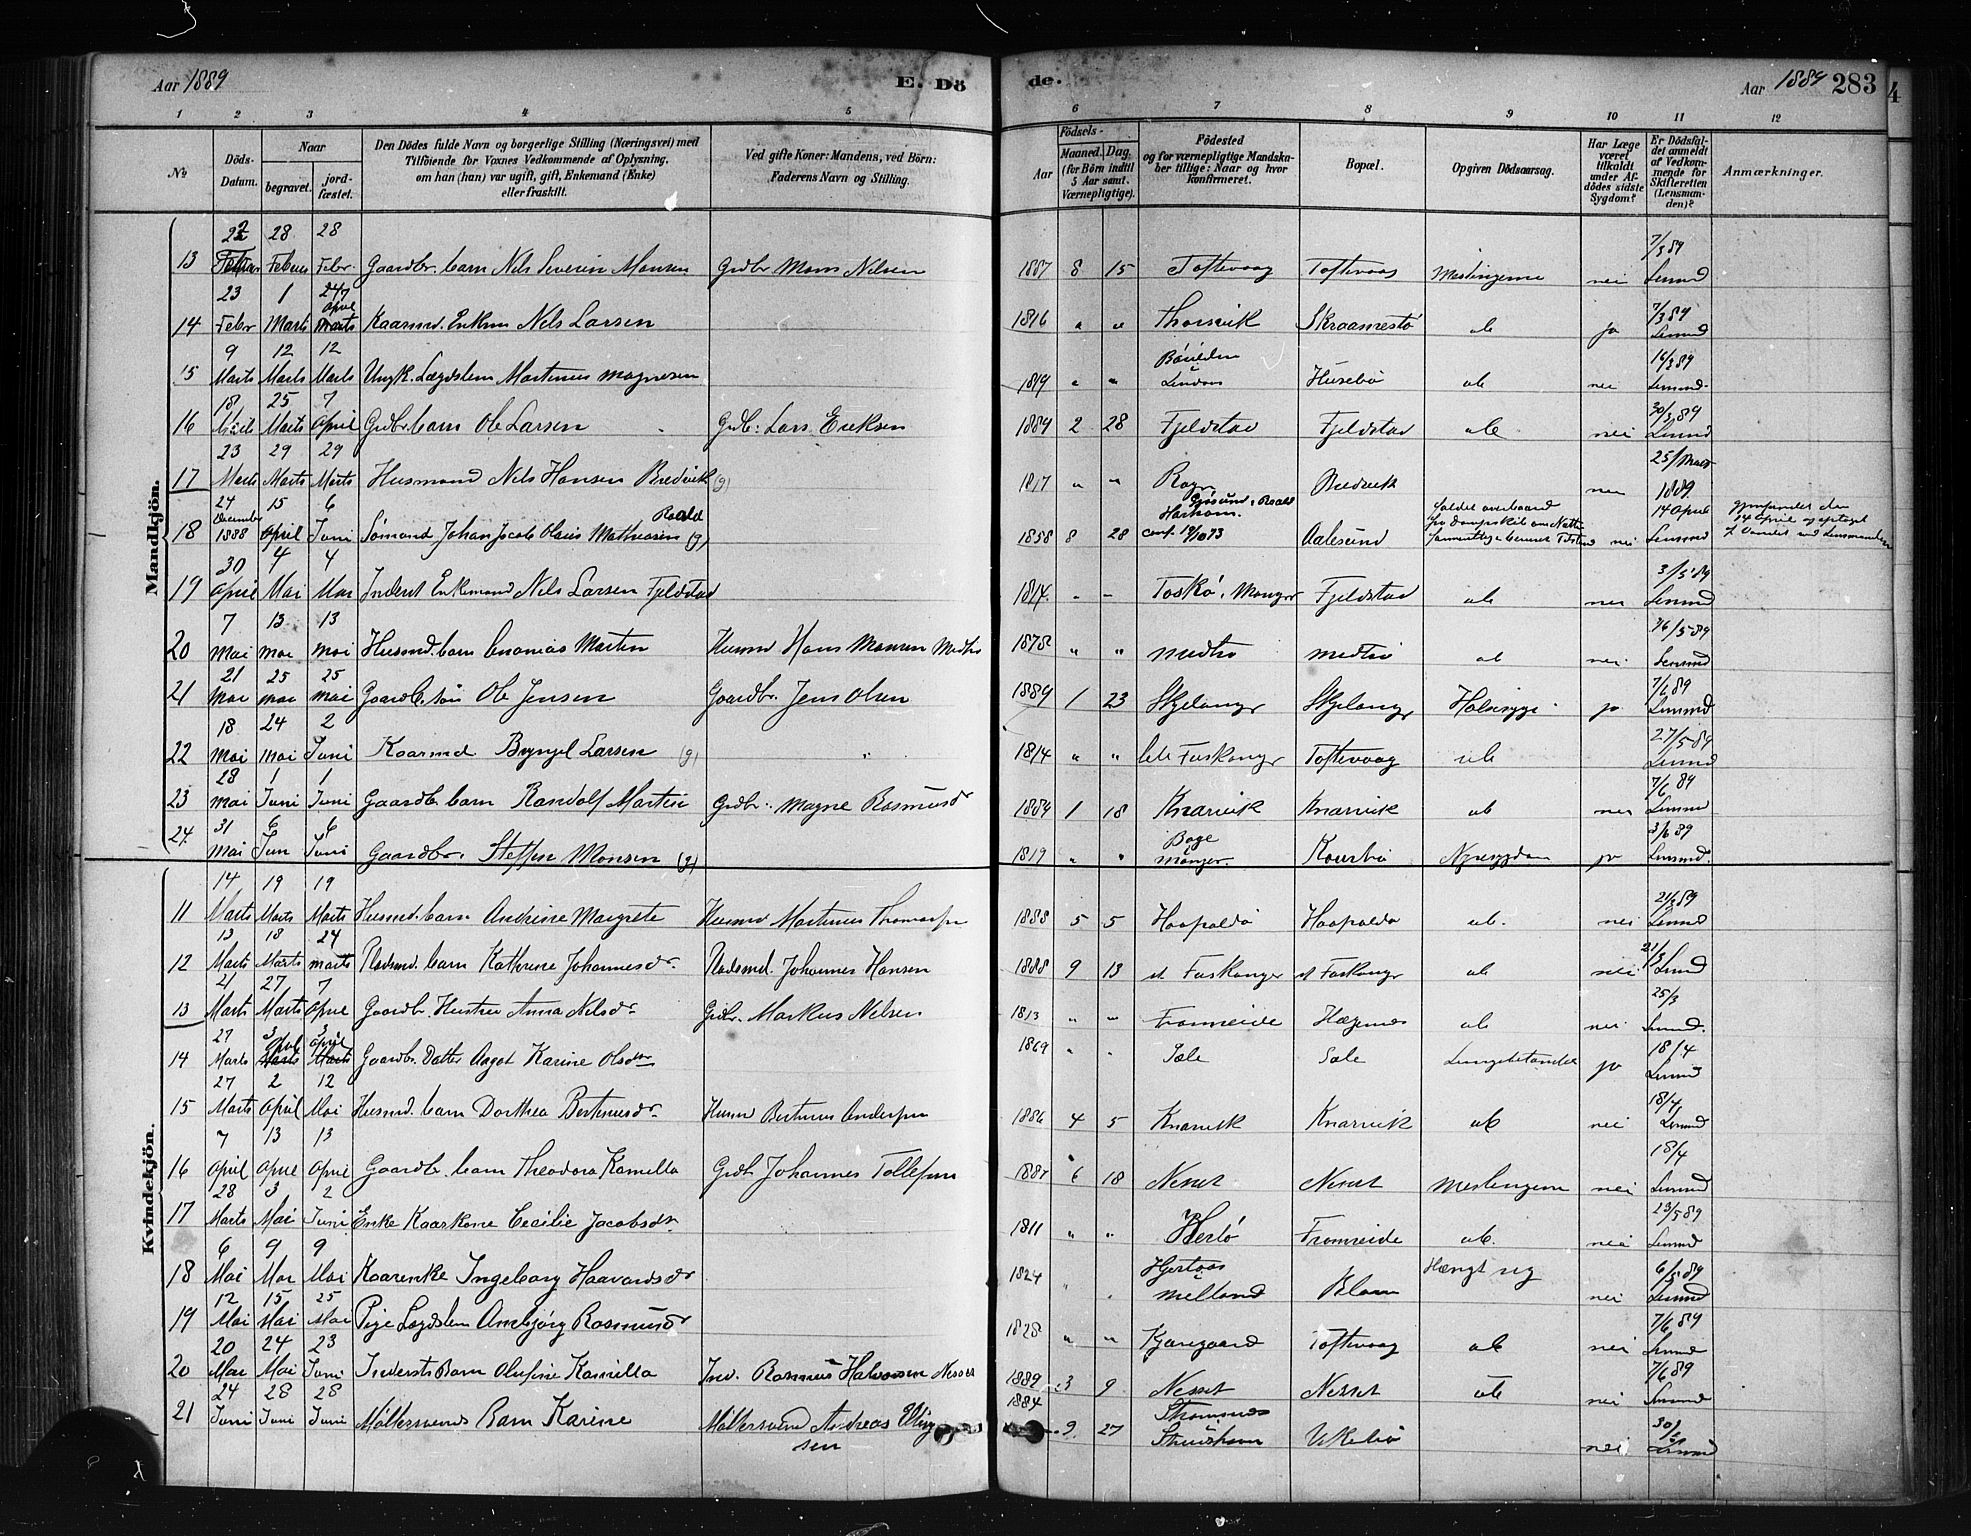 Aar 1889 E. Dö
de. Aar 1889 283
4
1 2 3 4 5 6 7 8 9 10 11 12
№
Döds-Datum.
Naar
begravet.
jord-fæstet.
Den Dödes fulde Navn og borgerlige Stilling (Næringsvei) med
Tilföiende for Voxnes Vedkommende af Oplysning,
om han (hun) var ugift, gift, Enkemand (Enke)
eller fraskilt.
Ved gifte Koner: Mandens, ved Börn:
Faderens Navn og Stilling.
Födsels-
Aar
Maaned. Dag.
(for Börn indtil
5 Aar samt
Værnepligtige).
Födested
og for værnepligtige Mandska-
ber tillige: Naar og hvor
konfirmeret.
Bopæl.
Opgiven Dödsaarsag.
Har Læge
været
tilkaldt
under Af-
dödes sidste
Sygdom?
Er Dödsfal-
det anmeldt
af Vedkom-
mende for
Skifteretten
(Lensman-
den)?
Anmærkninger.
Mandkjön.
13 28 Febr. Gaardbr. barn Nils Severin Monsen Grdbr Mons Nilsen 1887 8 15 Toftevaag Toftevaag Meslingerne nei 7/3 89 Lensmd
14 23 Febr 1 Marts April Kaarmd. Enkem Nils Larsen 1816 " " Thorsvik ub ja 7/3 89 Lensmd
15 9 Marts 12 Marts 12 Marts Ungk. Lægdslem Martinus Magnesen 1819 " " Lindaas Husebö ub nei 16/3 89 Lensmd.
16 18 Marts 25 Marts 7 April Grdbr barn Ole Larsen Grdb: Lars Eriksen 1889 2 28 Fjeldstad Fjeldstad ub nei 30/3 89 Lensmd
17 23 Marts 29 Marts 29 Marts Husmand Nils Hansen Bredvik (g) 1817 " " Bredvik nei 25/ Marts 1889
18 24 December 1888 15 April 6 Juni Sömand Johan Jacob Olaus Mathiasen Roald (g) 1858 8 28 conf. 19/10 73 Aalesund faldet overbord fra Dampskib om Natten nei 14 April Lensmd gjenfundet den 14 April og optaget
19 30 April 4 Mai 4 Mai Inderst Enkemand Nils Larsen Fjeldstad 1814 - - Toskö, Manger Fjeldstad ub nei 3/5 89 Lensmd
20 7 Mai 13 Mai 13 Mai Husmd. barn Ananias Martin Husmd Hans Monsen Medtö 1878 " " Medtö Medtö ub nei 16/5 89 Lensmd
21 21 Mai 25 Mai 25 Mai Gaardb. sön Ole Jensen Gaardbr. Jens Olsen 1889 1 23 Skjelanger Skjelanger Halssyge ja 7/6 89 Lensmd
22 18 Mai 24 Mai 2 Juni Kaarmd Brynjel Larsen (g) " 1814 " " Fuskanger Toftevaag ub 27/5 89 Lensmd
23 28 Mai 1 Juni 1 Juni Gaardb. barn Randolf Martin Grdbr. Magne Rasmusd 1889 1 18 Knarvik Knarvik ub nei 7/6 89 Lensmd
24 31 Mai 6 Juni 6 Juni Gaardbr. Steffen Monsen (g) 1819 " " Manger. Nyresygdom ja 3/6 89 Lensmd.
Kvindekjön.
11 14 Marts 19 Marts 19 Marts Husmd. barn Andrine Margrete Husmd Martinus Thomassen 1888 5 5 Haapoldö Haapoldö ub. nei 21/3 89 Lensmd
12 13 Marts 18 Marts 24 Marts Pladsmd. barn Kathrine Johannesdr. Pladsmd. Johannes Hansen 1888 9 13 Fuskanger Fuskangr ub nei 21/3 Lensmd
13 21 Marts 27 Marts 7 April Gaardbr. Hustru Anna Nilsdr Grdbr. Markus Nilsen 1813 " " Fromreide Hægernes ub nei 25/3 Lensmd.
14 27 Marts 3 April 3 April Gaardbr. Datter Aagot Karine Olsdtr 1869 " " Sæle Sæle Lungebetændelse ja 18/4 Lensmd
15 27 Marts 2 April 12 Mai Husmd. barn Dorthea Bertinusdr. Husmd Bertinus Andersen 1886 4 5 Knarvik Knarvik ub nei 18/4 Lensmd
16 7 April 13 April 13 April Gaardbr barn Theodora Kamilla Grdb Johannes Tollefsen 1887 6 18 Nesset Nesset Meslingerne nei 18/4 Lensmd
17 28 Marts 3 Mai 2 Juni Enke Kaarkone Cecilie Jacobsdr 1811 " " Herlö Fromreide ub. nei 23/5 89 Lensmd
18 6 Mai 9 Mai 9 Mai Kaarenke Ingeborg Haavardsdr 1824 " Hjertaas Melland Blom Hængt sig nei 6/5 89 Lensmd
19 12 Mai 15 Mai 25 Mai Pige Lægdslem Annbjörg Rasmusdr 1828 " " Kjæregaard Toftevaag ub nei 7/6 89 Lensmd
20 20 Mai 24 Mai 23 Juni Indersts Barn Olufine Kamilla Ind. Rasmus Halvorsen Nesset 1889 3 9 Nesset Nesset ub nei 7/6 89 Lensmd
21 24 Juni 28 Juni 28 Juni Möllersvends Barn Karine Möllersvend Andreas Elling
sen 1884 9 27 Strömsnes Ukebö nei 30/6 Lensmd